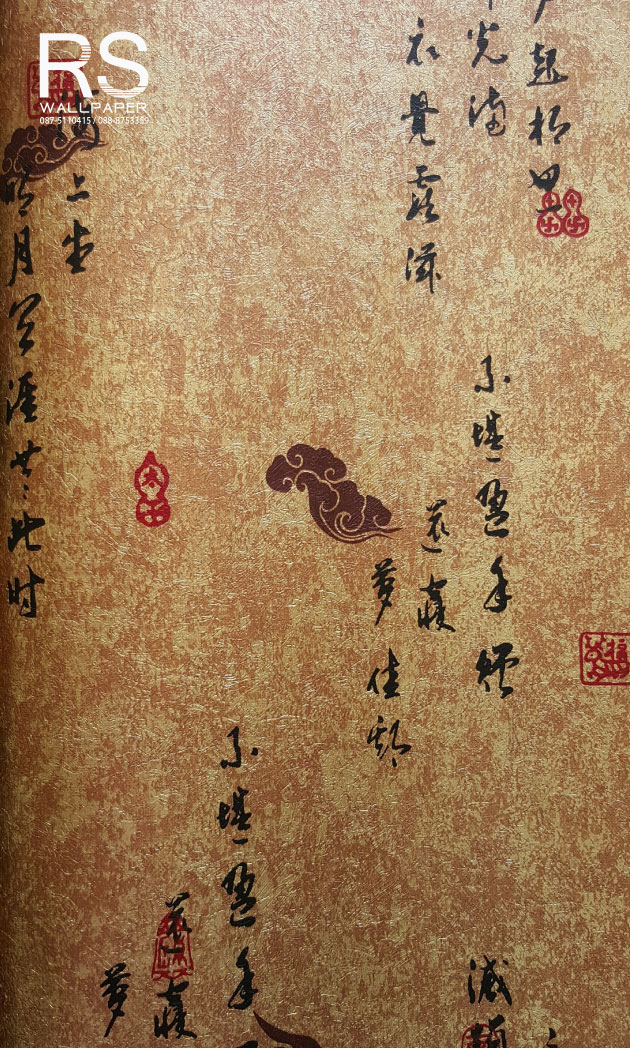 RS
WALLPAPER
087-5110415 / 088-8753359
起相思
光滿
衣覺露滋
海上生
明月天涯共此时
不堪盈手贈
還寢
夢佳期
不堪盈手
還寢
夢
滅